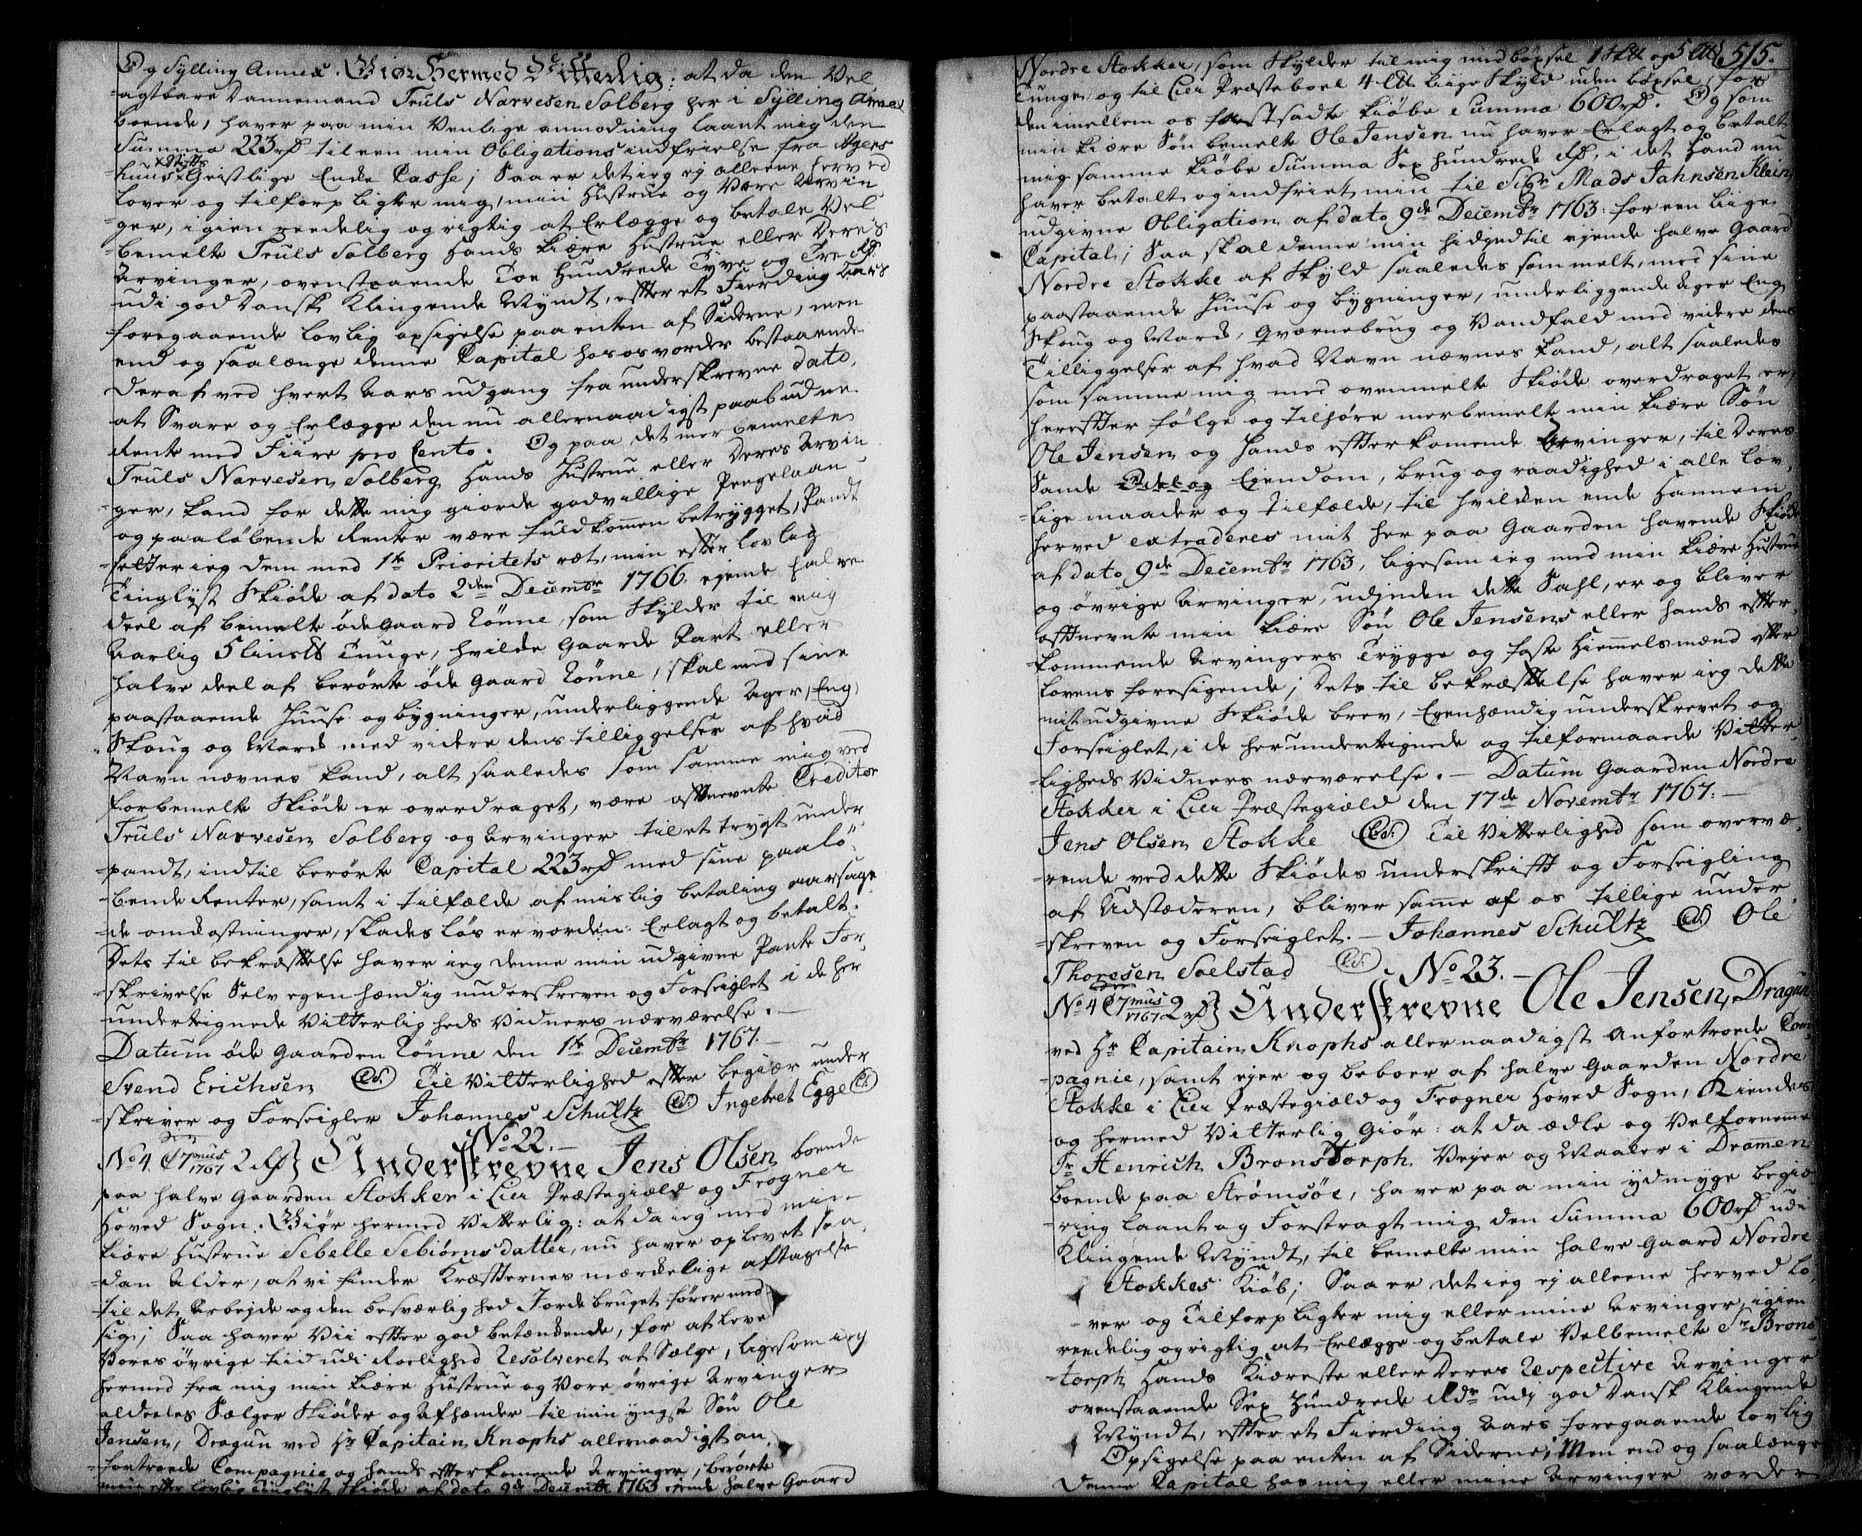 Og Sylling Annex. Giør Hermed Vitterlig: at da den Vel
agtbare Dannemand Truls Narvesen Solberg her i Sylling Annex
boende, haver paa min Venlige anmodning laant mig den
Summa 223 rd til een min Obligations indfrielse fra Agers
huus Stifts Geistlige Ende Casse; Saa er det ieg ej alleene herved
lover og tilforpligter mig, min Hustrue og Vore Arvin
ger, igien reedelig og rigtig at Erlægge og betale Vel
bemelte Truls Solberg Hands kiære Hustrue eller Deres
Arvinger, ovenstaaende Toe Hundrede Tyve og Tre rd.
udi god Dansk Klingende Mynt, efter et Fierding Aars
foregaaende lovlig opsigelse paa enten af Siderne, men
end og saalænge denne Capital hos os vorder bestaaende
deraf ved hvert Aars udgang fra underskrevne dato,
at Svare og Erlægge den nu allernaadigst paabudne
Rente med Fiire pro Cento. Og paa det mer bemelte
Truls Narvesen Solberg Hands Hustrue eller Deres Arvin
ger, kand for dette mig giorde godvillige Pengelaan
og paaløbende Renter være fuldkommen betrygget, Pandt
setter ieg dem med 1te Prioritets ret, min efter lovlig
Tinglyst Skiøde af dato 2den Decembr 1766 ejende halve
deel af bemelte ødegaard Tønne, som Skylder til mig
Aarlig 5 lius℔ Tunge, hvilke Gaarde Part eller
halve deel af berørte øde Gaard Tønne, skal med sine
paastaaende Huuse og bygninger, underliggende Ager, Eng,
Skoug og Mark med videre dens tilliggelser af hvad
Navn nævnes kand, alt saaledes som samme mig ved
forbemelte Skiøde er overdraget, være oftnevnte Creditor
Truls Narvesen Solberg og Arvinger til et trygt under
pandt, indtil berørte Capital 223 rd med sine paalø
bende Renter, samt i tilfælde af mislig betaling aarsage
de omkostninger, skadesløs er vorden Erlagt og betalt.
Dets til bekræftelse haver ieg denne min udgivne Pante For
skrivelse Selv egenhændig underskreven og Forseiglet i de her
undertegnede Vitterligheds Vidners nærværelse.
Datum øde Gaarden Tønne den 1te Decembr 1767.
Svend Erichsen (L.S.) Til Vitterlighed efter begiær under
skriver og Forseigler Johannes Schultz (L.S.) Ingebret Egge (L.S.)
No 22.
No 4 C 7mus 1767 2 rd Underskrevne Jens Olsen boende
paa halve Gaarden Stokker i Lier Præstegield og Frogner
Hoved Sogn. Giør hermed Vitterlig: at da ieg med min
kiære Hustrue Sebelle Sebiørnsdatter, nu haver oplevet saa
dan Alder, at vi finder Kræfternes mærkelige aftagelse
til det Arbejde og den besværlighed Jordebruget fører med
sig; Saa haver Vii efter god betænkende, for at leve
Vores øvrige tiid udi Roelighed Resolveret at Sælge, ligesom ieg
hermed fra mig min kiære Hustrue og Vore øvrige Arvinger
aldeeles Sælger Skiøder og Afhænder til min yngst Søn Ole
Jensen, Dragun ved Hr Capitain Knophs allernaadigst an
fortroede Compagnie og hands efterkomende Arvinger, berørte
min efter lovlig Tinglyst Skiøde af dato 9de Decembr 1763 ejende halve Gaard
515.
Nordre Stokker, som Skylder til mig med bøxsel 1 Sk℔ og 5 L℔
Tunge, og til Lier Præsteboel 4 L℔ liige Skyld uden bøxsel, for
den imellem os fastsadte kiøbe Summa 600 rd. Og som
min kiære Søn bemelte Ole Jensen nu haver Erlagt og betalt
mig samme kiøbe Summa Sex hundrede rd, i det Hand nu
haver betalt og indfriet min til Sigr Mads Jahnsen Klein
udgivne Obligation af dato 9de Decembr 1763 for een liige
Capital; Saa skal denne min hidindtil ejende halve Gaard
Nordre Stokke af Skyld saaledes som melt, med sine
paastaaende Huuse og bygninger, underliggende Ager Eng
Skoug og Mark, Qværnebrug og Vandfald med videre dens
Tilliggelser af hvad Navn nævnes kand, alt saaledes
som samme mig med ovenmelte Skiøde overdraget er,
herefter følge og tilhøre merbemelte min kiære Søn
Ole Jensen og Hands efterkomende Arvinger, til Deres
Sande Odel og Ejendom, brug og raadighed i alle lov
lige maader og tilfælde, til hvilken ende Hannem
herved extraderes mit her paa Gaarden havende Skiøde
af dato 9de Decembr 1763, ligesom ieg med min kiære Hustrue
og øvrige Arvinger, udi dette Sahl, er og bliver
oftnevnte min kiære Søn Ole Jensens eller hands efter
kommende Arvingers Trygge og faste Hiemmelsmænd efter
lovens foresigende; Dets til bekræftelse haver ieg dette
mit udgivne Skiøde brev, Egenhændig underskrevet og
Forseiglet, i de herundertegnede og tilformaaede Vitter
ligheds Vidners nærværelse. — Datum Gaarden Nordre
Stokker i Lier Præstegield den 17de Novembr 1767. —
Jens Olsen Stokke (L.S.) Til Vitterlighed som overvæ
rende ved dette Skiødes underskrift og Forseigling
af Udstæderen, bliver same af os tillige under
skreven og Forseiglet. — Johannes Schultz (L.S.) Ole
Thoresen Soelstad (L.S.) No 23. —
No 4 C 7mus 1767 2 rd Underskrevne Ole Jensen, Dragun
ved Hr Capitain Knophs allernaadigst Anfortroede Com
pagnie, samt ejer og beboer af halve Gaarden Nordre
Stokke i Lier Præstegield og Frogner Hoved Sogn, Kiendes
og hermed Vitterlig Giør: at da ædle og Velfornemme
Sr Henrich Bronstorph Vejer og Maaler i Dramen
boende paa Strømsøe, haver paa min ydmyge begiæ
ring laant og Forstragt mig den Summa 600 rd udi
Klingende Mynt, til bemelte min halve Gaard Nordre
Stokkes Kiøb; Saa er det ieg ej alleene herved lo
ver og Tilforpligter mig eller mine Arvinger, igien
reedelig og rigtig at Erlægge og betale Velbemelte Sr Brons
torph Hands Kiæreste eller Deres Respective Arvinger
ovenstaaende Sex Hundrede Rdr udi god Dansk Klingende
Mynt, efter et Fierding Aars foregaaende lovlig
Opsigelse paa enten af Siderne; Men end og saalænge
denne Capital hos mig eller mine Arvinger vorder